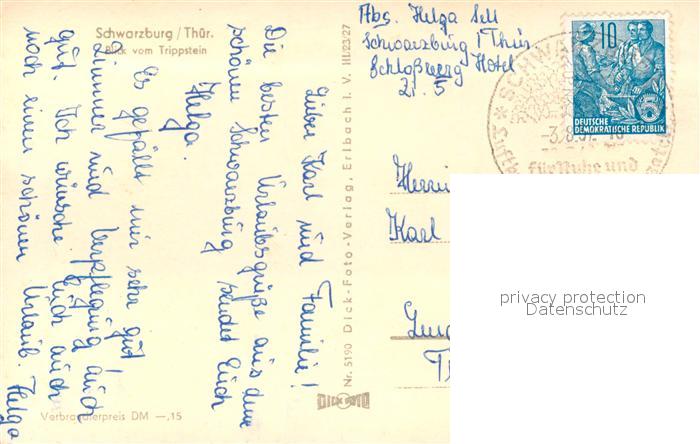 Schwarzburg / Thür.
Blick vom Trippstein
Lieber Karl und Familie!
Die besten Urlaubsgrüße aus dem
schönen Schwarzburg sendet Euch
Helga.
Es gefällt mir sehr gut!
Zimmer und Verpflegung auch
gut. Ich wünsche Euch auch
noch einen schönen Urlaub. Helga
Verbraucherpreis DM —,15
Nr. 5190 Dick-Foto-Verlag, Erlbach i. V. III/23/27
DICK FOTO
Abs. Helga Sell
Schwarzburg / Thür
Schloßweg Hotel
10
5
DEUTSCHE
DEMOKRATISCHE REPUBLIK
SCHWARZ
für Ruhe und
Herrn
Karl
privacy protection
Datenschutz